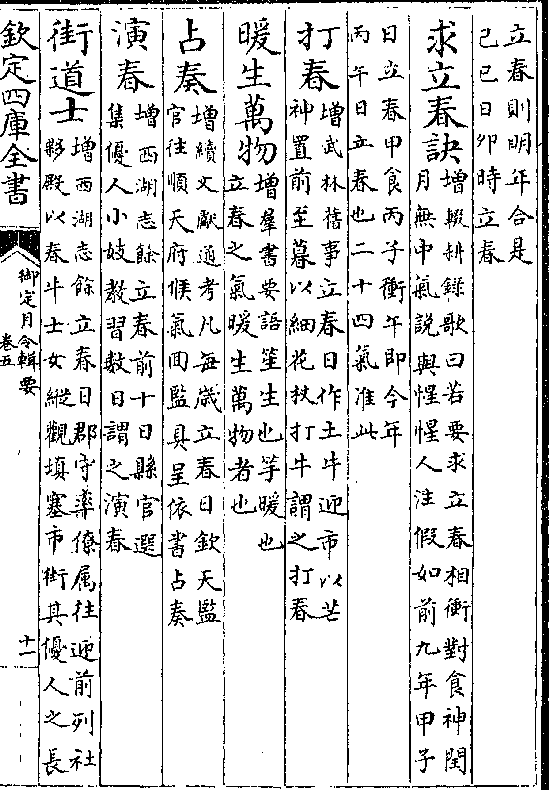 立春則明年合是
己巳日卯時立春
求立春訣增輟耕錄歌曰若要求立春相衝對食神閏
月無中氣説與惺惺人注假如前九年甲子
日立春甲食丙子衝午即今年
丙午日立春也二十四氣准此
打春增武林舊事立春日作土牛迎市以芒
神置前至暮以細花杖打牛謂之打春
暖生萬物增羣書要語笙生也竽暖也
立春之氣暖生萬物者也
占奏增續文獻通考凡每歲立春日欽天監
官往順天府候氣回監具呈依書占奏
演春增西湖志餘立春前十日縣官選
集優人小妓教習數日謂之演春
街道士增西湖志餘立春日郡守率僚属往迎前列社
夥殿以春牛士女縱觀填塞市街其優人之長
欽定四庫全書
御定月令輯要
卷五
十一